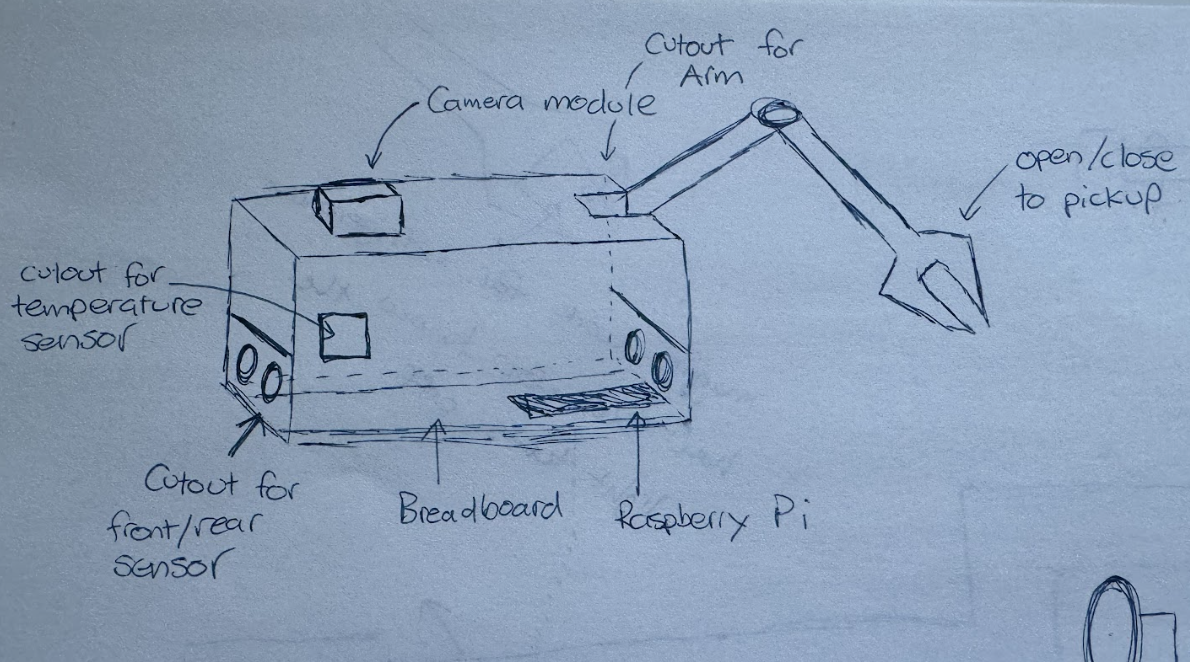 Cutout for
Arm
Camera module
open/close
to pickup
cutout for
temperature
sensor
Cutout for
front/rear
sensor
Breadboard
Raspberry Pi